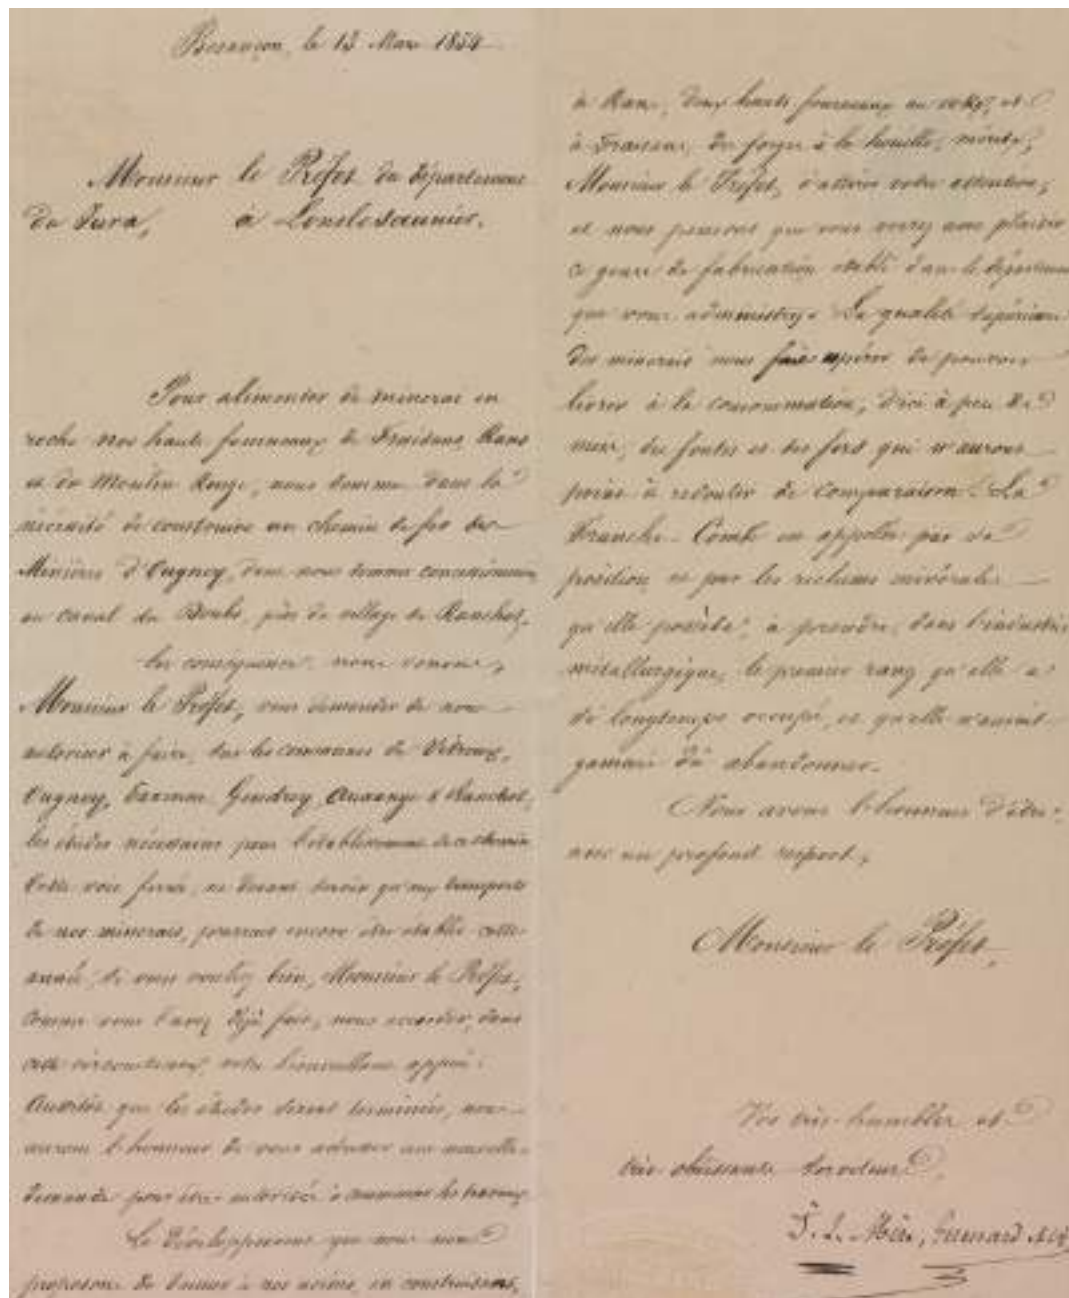 Besançon, le 13 Mars 1854
Monsieur le Préfet du département
du Jura, à Lonslesaunier.
Pour alimenter de minerai en
roche nos hauts fourneaux de Fraisans, Rans
et du Moulin Rouge, nous sommes dans la
nécessité de construire un chemin de fer des
Minières d'Ougney, dont nous sommes concessionnaires
au canal du Doubs, près du village de Ranchot.
En conséquence, nous venons,
Monsieur le Préfet, vous demander de nous
autoriser à faire, sur les communes de Vitreux,
Ougney, Gendrey, Auxange & Ranchot,
les études nécessaires pour l'établissement de ce chemin
Cette voie ferrée, ne devant servir qu'aux transports
de nos minerais, pourrait encore être établie cette
année, si vous voulez bien, Monsieur le Préfet,
comme vous l'avez déjà fait, nous accorder, dans
cette circonstance, votre bienveillant appui.
Aussitôt que les études seront terminées, nous
aurons l'honneur de vous adresser une nouvelle
demande pour être autorisés à commencer les travaux.
Le développement que nous nous
proposons de donner à nos usines, en construisant,
à Rans, deux hauts fourneaux au coke, et
à Fraisans, des forges à la houille, mérite,
Monsieur le Préfet, d'attirer votre attention,
et nous pensons que vous verrez avec plaisir
ce genre de fabrication établi dans le département
que vous administrez. La qualité supérieure
des minerais nous fait espérer de pouvoir
livrer à la consommation, d'ici à peu de
mois, des fontes et des fers qui n'auront
point à redouter de comparaison. La
Franche-Comté est appelée par sa
position et par les richesses minérales
qu'elle possède, à prendre, dans l'industrie
métallurgique, le premier rang qu'elle a
si longtemps occupé, et qu'elle n'aurait
jamais dû abandonner.
Nous avons l'honneur d'être,
avec un profond respect,
Monsieur le Préfet,
Vos très-humbles et
très-obéissants Serviteurs,